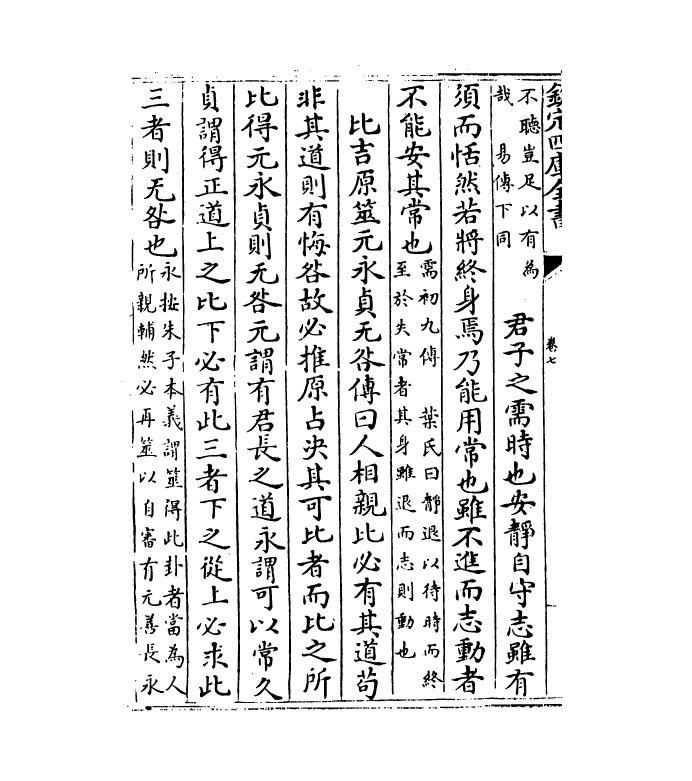 欽定四庫全書
卷七
不聽豈足以有為
哉　易傳下同
君子之需時也安靜自守志雖有
須而恬然若將終身焉乃能用常也雖不進而志動者
不能安其常也
需初九傳　葉氏曰靜退以待時而終
至於失常者其身雖退而志則動也
比吉原筮元永貞无咎傳曰人相親比必有其道苟
非其道則有悔咎故必推原占决其可比者而比之所
比得元永貞則无咎元謂有君長之道永謂可以常久
貞謂得正道上之比下必有此三者下之從上必求此
三者則无咎也
永按朱子本義謂筮得此卦者當為人
所親輔然必再筮以自審有元善長永